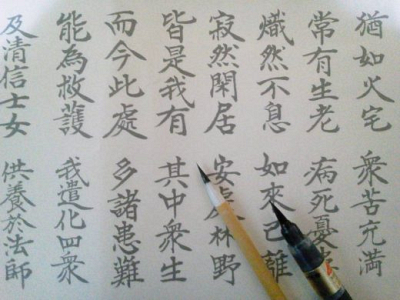 猶如火宅 衆苦充満
常有生老 病死憂患
熾然不息 如來已離
寂然閑居 安處林野
皆是我有 其中衆生
而今此處 多諸患難
能為救護 我遣化四衆
及清信士女 供養於法師